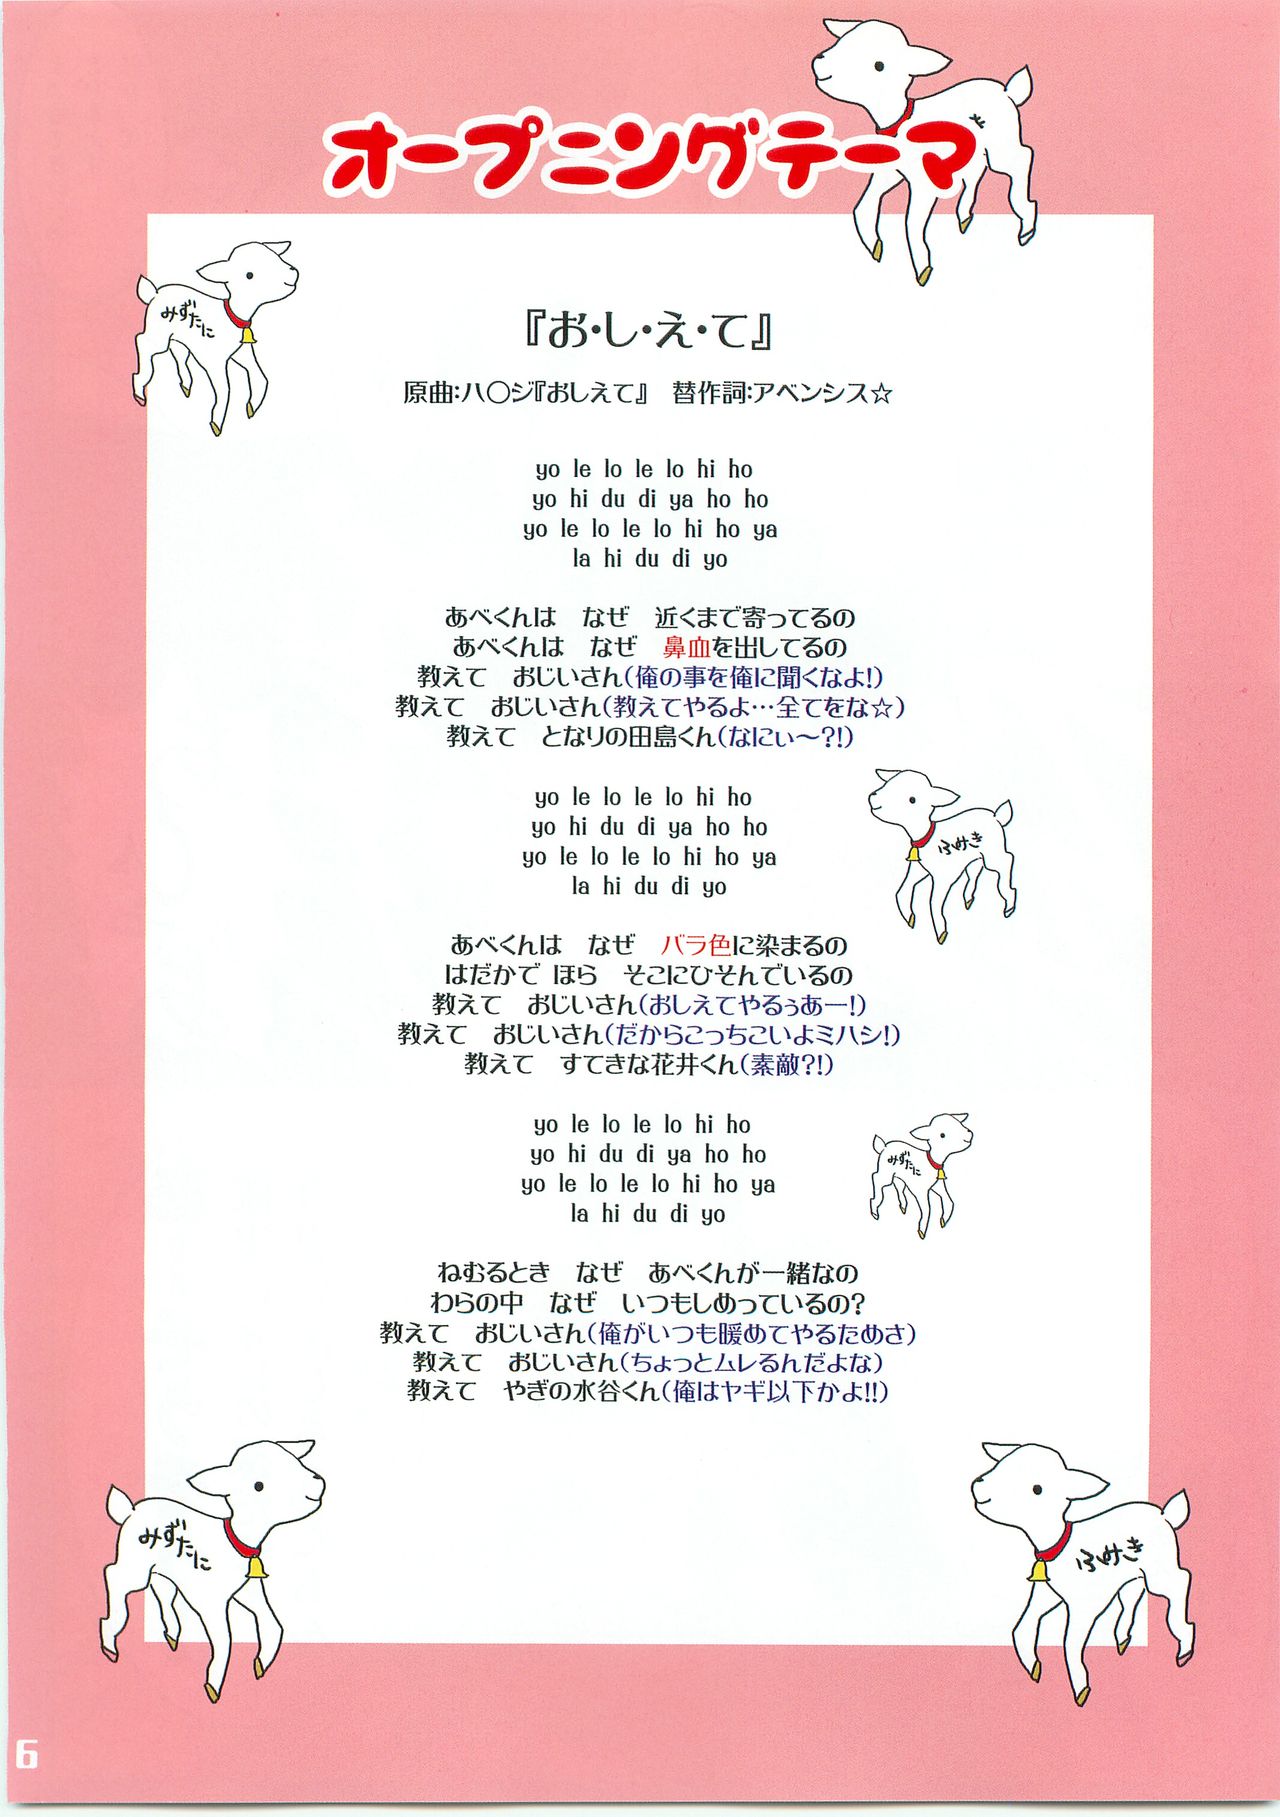 オープニングテーマ
『お・し・え・て』
原曲:ハ〇ジ『おしえて』 替作詞:アベンシス☆
みずたに
yo le lo le lo hi ho
yo hi du di ya ho ho
yo le lo le lo hi ho ya
la hi du di yo
あべくんは なぜ 近くまで寄ってるの
あべくんは なぜ 鼻血を出してるの
教えて おじいさん(俺の事を俺に聞くなよ!)
教えて おじいさん(教えてやるよ…全てをな☆)
教えて となりの田島くん(なにぃ〜?!)
yo le lo le lo hi ho
yo hi du di ya ho ho
yo le lo le lo hi ho ya
la hi du di yo
ふみき
あべくんは なぜ バラ色に染まるの
はだかで ほら そこにひそんでいるの
教えて おじいさん(おしえてやるぅあー!)
教えて おじいさん(だからこっちこいよミハシ!)
教えて すてきな花井くん(素敵?!)
yo le lo le lo hi ho
yo hi du di ya ho ho
yo le lo le lo hi ho ya
la hi du di yo
みずたに
ねむるとき なぜ あべくんが一緒なの
わらの中 なぜ いつもしめっているの?
教えて おじいさん(俺がいつも暖めてやるためさ)
教えて おじいさん(ちょっとムレるんだよな)
教えて やぎの水谷くん(俺はヤギ以下かよ!!)
みずたに
ふみき
6